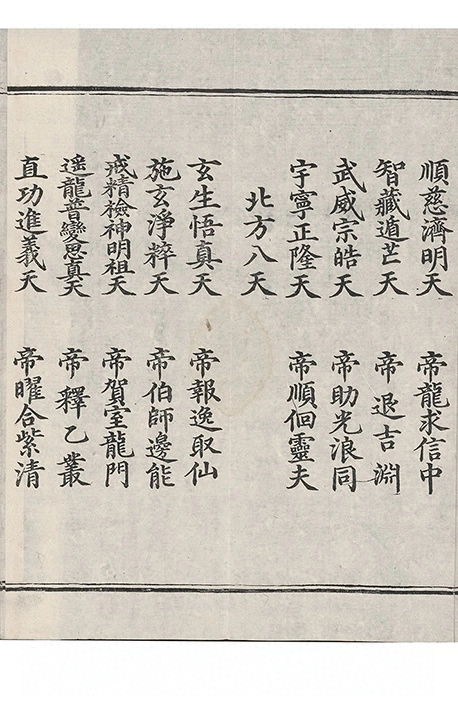 順慈濟明天　帝龍求信中
智藏遁芒天　帝退吉淵
武威宗皓天　帝助光浪同
宇寧正隆天　帝順佪靈夫
北方八天
玄生悟真天　帝報逸取仙
施玄淨粹天　帝伯師邊能
戒精檢神明祖天　帝賀室龍門
遥龍普變思真天　帝釋乙叢
直功進義天　帝曜合紫清